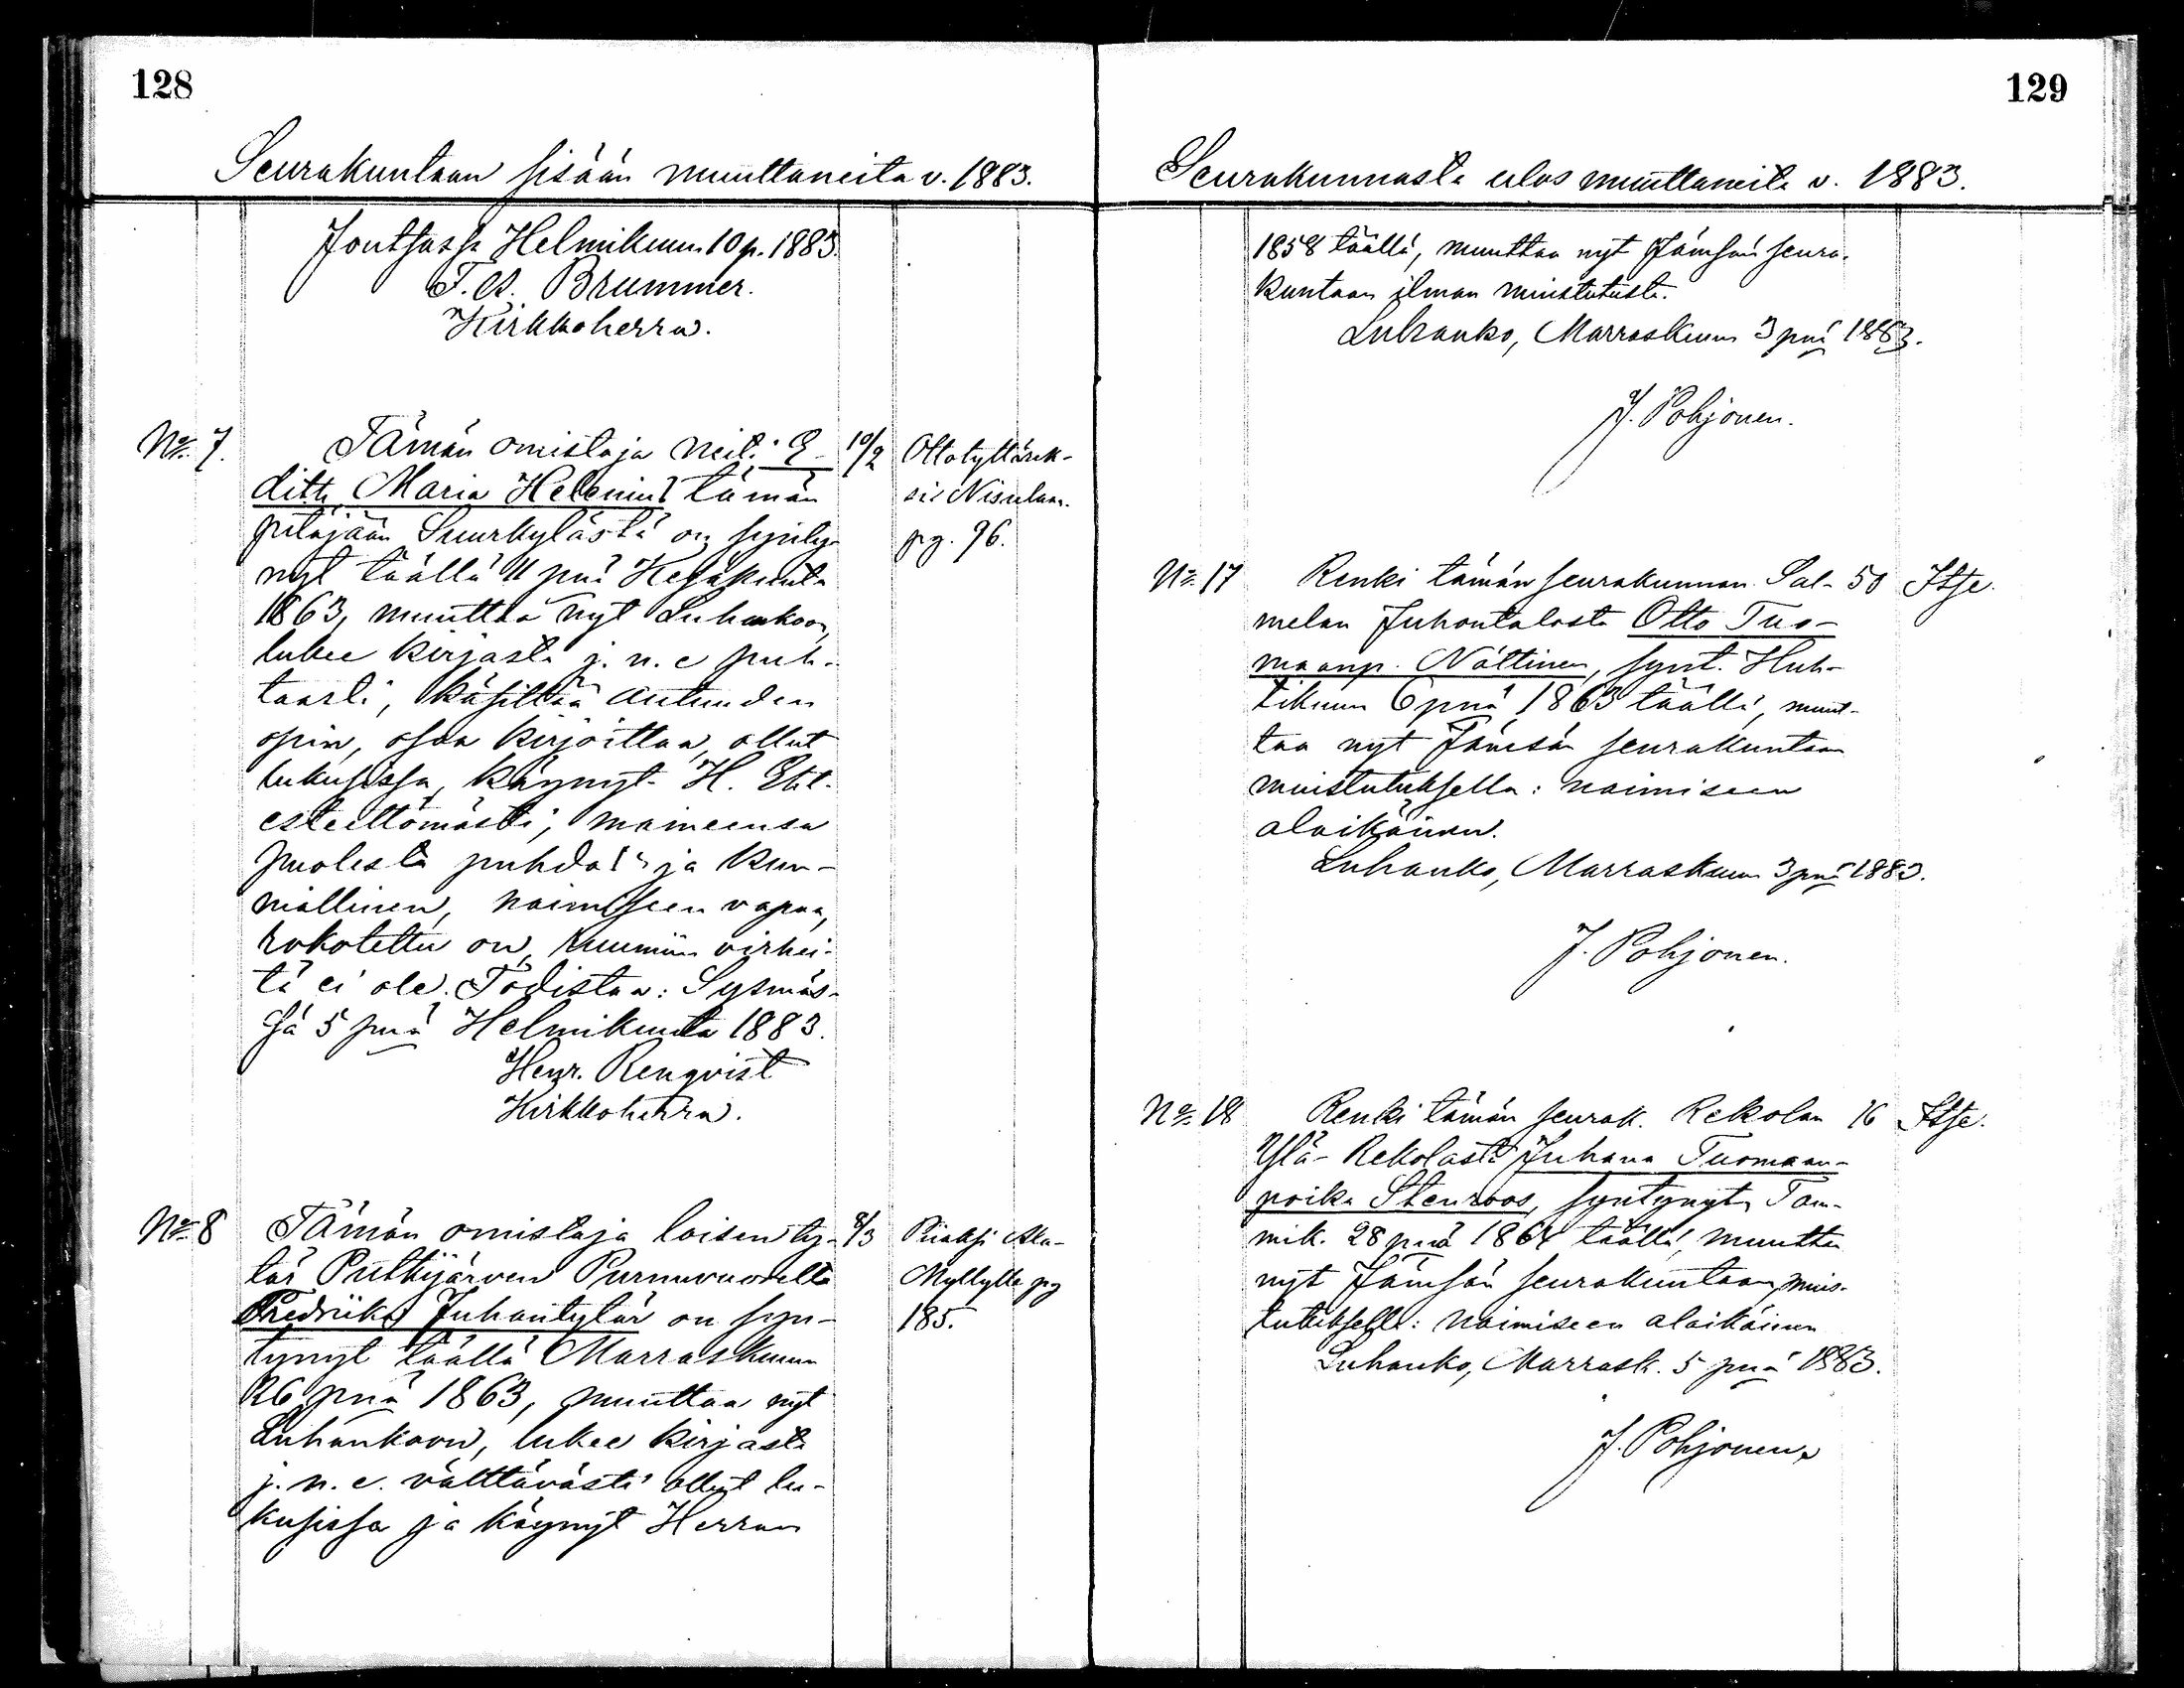 128
Seurakuntaan sisään muuttaneita v. 1883.
Joutsassa Helmikuun 10 p. 1883.
F. A. Brummer.
Kirkkoherra.
No 7. Tämän omistaja neiti E- 10/2 Ottotyttärek-
ditt Maria Helenius tämän si Nisulaan.
pitäjään Suurkylästä on synty- pg. 96.
nyt täällä 11 pnä Kesäkuuta
1863, muuttaa nyt Luhankoon,
lukee kirjasta j. n. e puh-
taasti, käsittää autuuden
opin, osaa kirjoittaa, ollut
lukusissa, käynyt H. Eht.
esteettömästi, maineensa
puolesta puhdas ja kun-
niallinen, naimiseen vapaa,
rokotettu on, ruumiin virhei-
tä ei ole. Todistaa: Sysmäs-
sä 5 pnä Helmikuuta 1883.
Henr. Renqvist
Kirkkoherra.
No 8 Tämän omistaja loisen ty- 8/3 Piiaksi Ala-
tär Putkijärven Purnuvuorelta Myllylle pg
Fredriika Juhontytär on syn- 185.
tynyt täällä Marraskuun
26 pnä 1863, muuttaa nyt
Luhankoon, lukee kirjasta
j. n. e. välttävästi ollut lu-
kusissa ja käynyt Herran
129
Seurakunnasta ulos muuttaneita v. 1883.
1858 täällä, muuttaa nyt Jämsän seura-
kuntaan ilman muistutusta.
Luhanko, Marraskuun 3 pnä 1883.
J. Pohjonen.
No 17 Renki tämän seurakunnan Sal- 50 Itse.
melan Juhontalosta Otto Tuo-
maanp. Nättinen, synt. Huh-
tikuun 6 pnä 1863 täällä, muut-
taa nyt Jämsän seurakuntaan
muistutuksella: naimiseen
alaikäinen.
Luhanko, Marraskuun 3 pnä 1883.
J. Pohjonen.
No 18 Renki tämän seurak. Rekolan 16 Itse.
Ylä-Rekolasta Juhana Tuomaan-
poika Stenroos, syntynyt Tam-
mik. 28 pnä 1864 täällä, muutta
nyt Jämsän seurakuntaan, muis-
tutuksella: naimiseen alaikäinen
Luhanko, Marrask. 5 pnä 1883.
J. Pohjonen